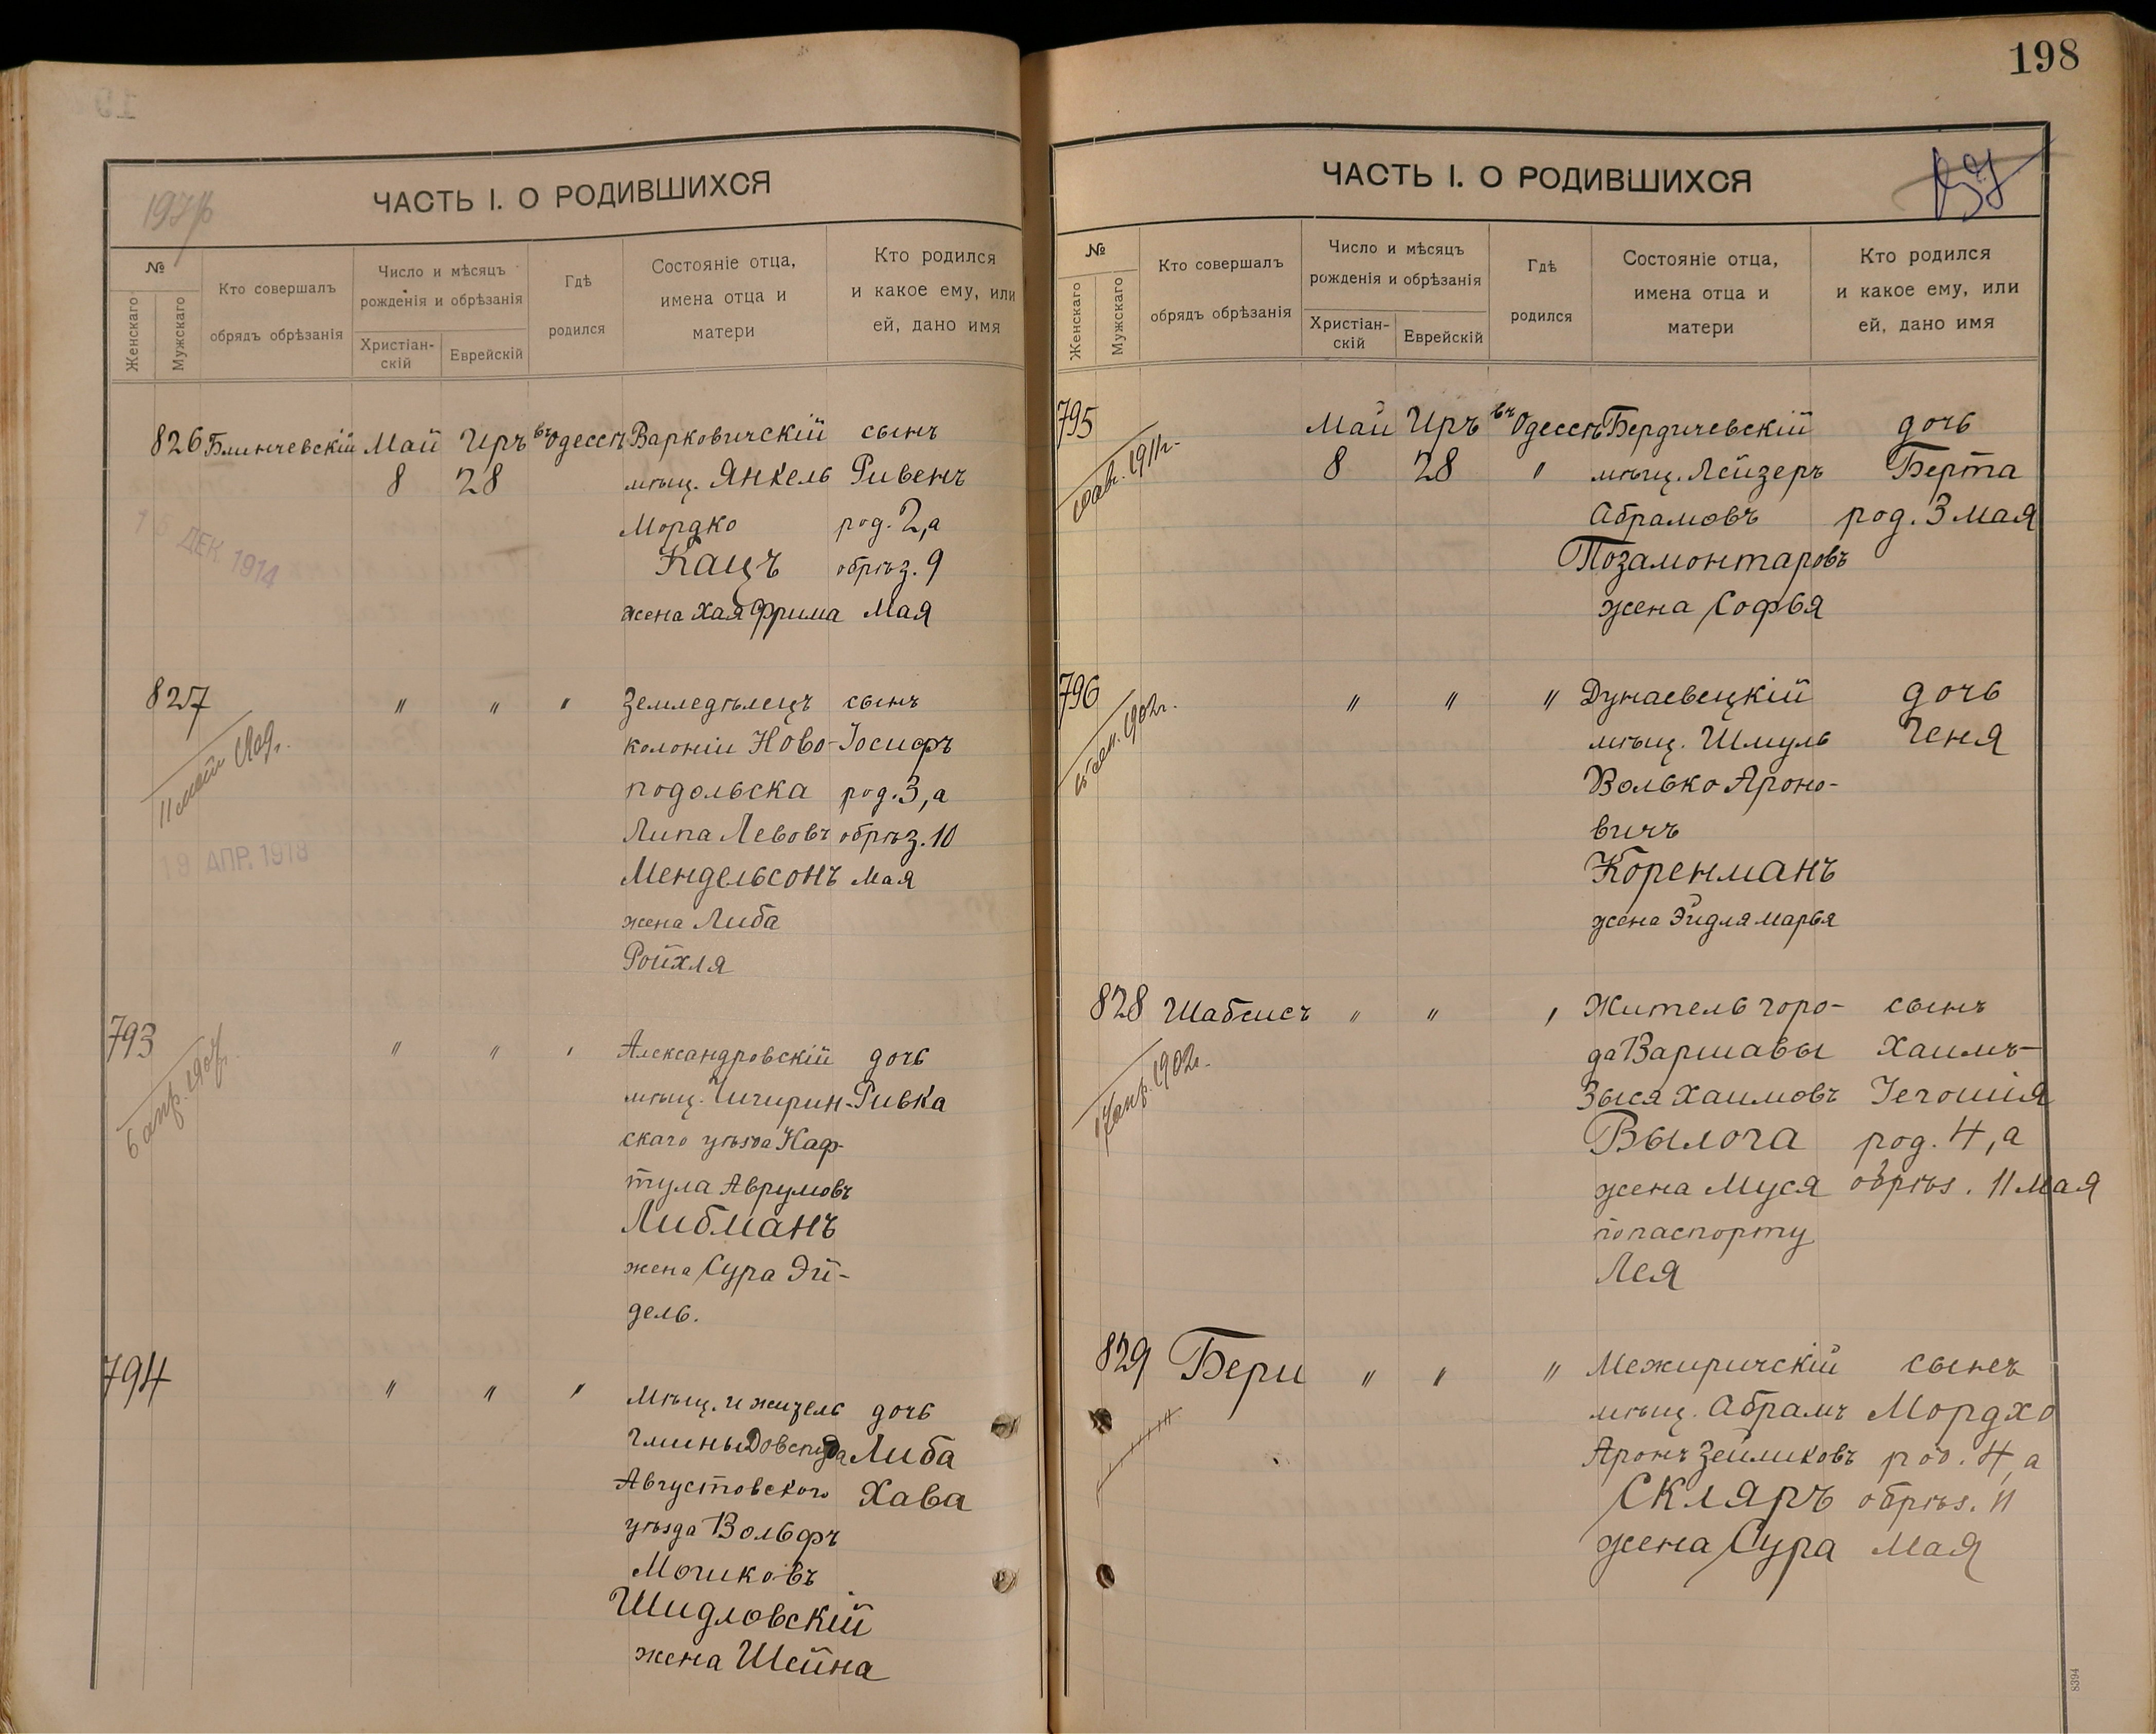 198
ЧАСТЬ I. О РОДИВШИХСЯ
№
Женскаго
Мужскаго
Кто совершалъ
обрядъ обрѣзанія
Число и мѣсяцъ
рожденія и обрѣзанія
Христіан-
скій
Еврейскій
Гдѣ
родился
Состояніе отца,
имена отца и
матери
Кто родился
и какое ему, или
ей, дано имя
826 Блинчевскій Май Иръ въ Одессѣ Варковичскій сынъ
8 28 мѣщ. Янкель Ривенъ
Мордко род. 2, а
Кацъ обрѣз. 9
жена Хая Фрима Мая
ДЕК 1914
827 " " " Земледѣлецъ сынъ
колоніи Ново- Іосифъ
подольска род. 3, а
Липа Левовъ обрѣз. 10
Мендельсонъ Мая
жена Либа
Ройхля
19 АПР. 1918
793 " " " Александровскій дочь
мѣщ. Чигирин- Ривка
скаго уѣзда Наф-
тула Аврумовъ
Либманъ
жена Сура Эй-
дель.
794 " " " Мѣщ. и житель дочь
гмины Довспуда Либа
Августовского Хава
уѣзда Вольфъ
Мошковъ
Шидловскій
жена Шейна
ЧАСТЬ I. О РОДИВШИХСЯ
№
Женскаго
Мужскаго
Кто совершалъ
обрядъ обрѣзанія
Число и мѣсяцъ
рожденія и обрѣзанія
Христіан-
скій
Еврейскій
Гдѣ
родился
Состояніе отца,
имена отца и
матери
Кто родился
и какое ему, или
ей, дано имя
795 Май Иръ въ Одессѣ Бердичевскій дочь
8 28 " мѣщ. Лейзеръ Берта
Абрамовъ род. 3 мая
Позамонтаровъ
жена Софья
796 " " " Дунаевецкій дочь
мѣщ. Шмуль Геня
Волько Ароно-
вичъ
Коренманъ
жена Эйдля Марья
828 Шабсисъ " " " Житель горо- сынъ
да Варшавы Хаимъ-
Зыся Хаимовъ Іегошія
Вылога род. 4, а
жена Муся обрѣз. 11 мая
по паспорту
Лея
1902г.
829 Бери " " " Межиричскій сынъ
мѣщ. Абрамъ Мордхо
Аронъ Зейликовъ род. 4, а
Скляръ обрѣз. 11
жена Сура Мая
8394